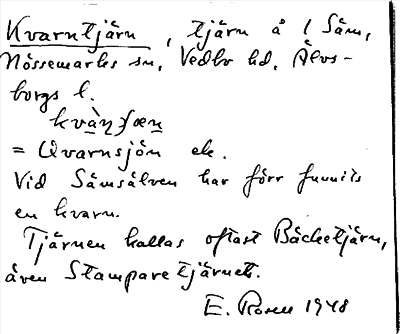 Kvarntjärn, tjärn å l Säm,
Nössemarks sn, Vedbo hd, Älvs-
borgs l.
kvàn̥ʃæn
= Qvarnsjön ek.
Vid Sämsälven har förr funnits
en kvarn.
Tjärnen kallas oftast Bäcketjärn,
även Stamparetjärnet.
E. Rosen 1948